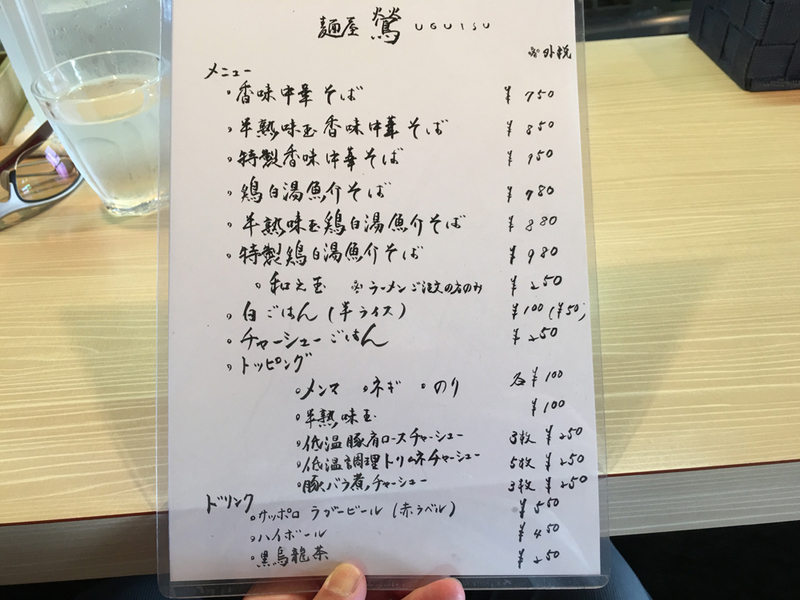 麺屋 鶯 UGUISU
※外税
メニュー
。香味中華そば ¥750
。半熟味玉香味中華そば ¥850
。特製香味中華そば ¥950
。鶏白湯魚介そば ¥780
。半熟味玉鶏白湯魚介そば ¥880
。特製鶏白湯魚介そば ¥980
。和え玉 ※ラーメンご注文の方のみ ¥250
。白ごはん(半ライス) ¥100(¥50)
。チャーシューごはん ¥250
。トッピング
。メンマ 。ネギ 。のり 各¥100
。半熟味玉 ¥100
。低温豚肩ロースチャーシュー 3枚 ¥250
。低温調理トリムネチャーシュー 5枚 ¥250
。豚バラ煮チャーシュー 3枚 ¥250
ドリンク
。サッポロ ラガービール(赤ラベル) ¥550
。ハイボール ¥450
。黒烏龍茶 ¥250